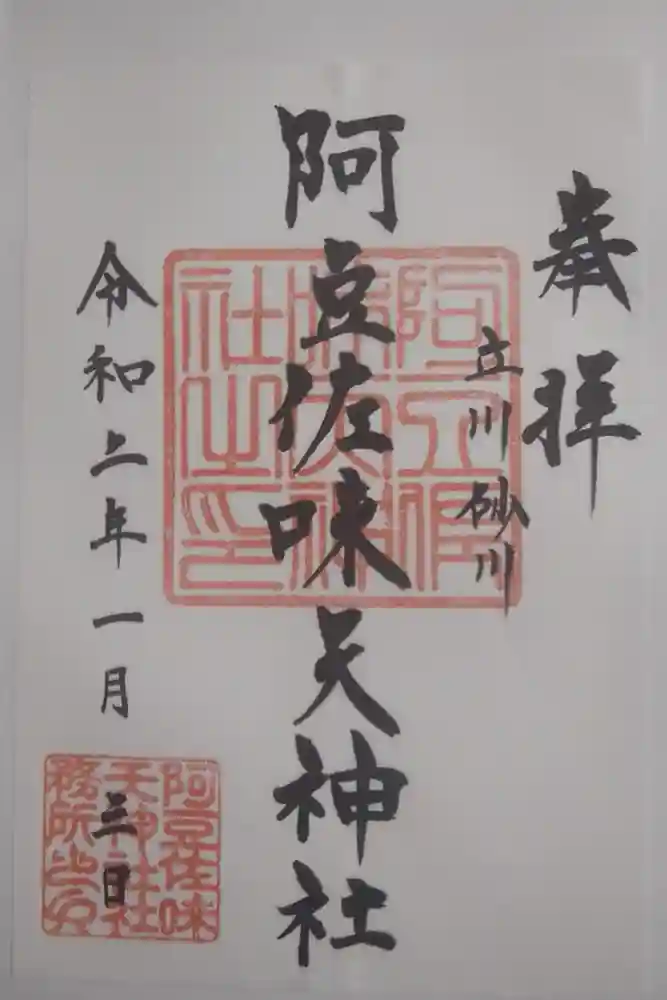 奉拝
立川砂川
阿豆佐味天神社
令和二年一月
三日
阿豆佐味
天神社
務所之印